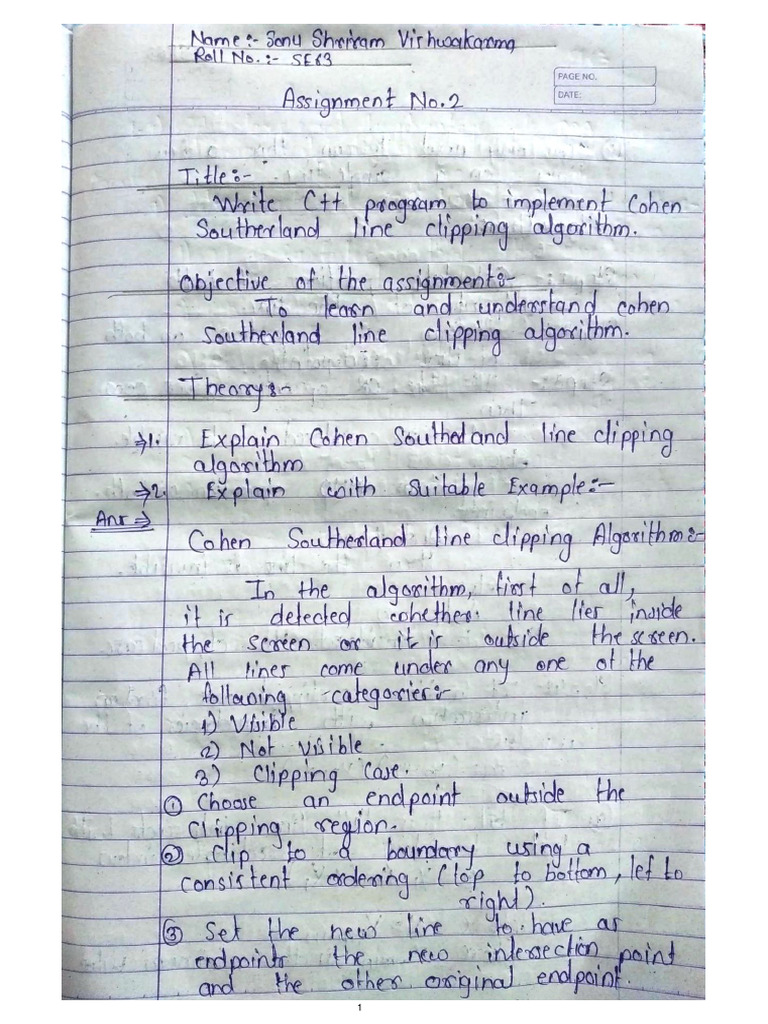 Name:- Sonu Shriram Vishwakarma
Roll No.:- SE63
PAGE NO.
DATE:
Assignment No.2
Title:-
Write C++ program to implement Cohen
Southerland line clipping algorithm.
Objective of the assignment:-
To learn and understand cohen
Southerland line clipping algorithm.
Theory:-
⇒1. Explain Cohen Southerland line clipping
algorithm
⇒2. Explain with Suitable Example:-
Ans ⇒
Cohen Southerland line clipping Algorithm:-
In the algorithm, first of all,
it is detected whether line lies inside
the screen or it is outside the screen.
All lines come under any one of the
following categories:-
1) Visible
2) Not Visible
3) Clipping Case.
① Choose an endpoint outside the
Clipping region.
② Clip to a boundary using a
consistent ordering (top to bottom, lef to
right).
③ Set the new line to have as
endpoints the new intersection point
and the other original endpoint.
1